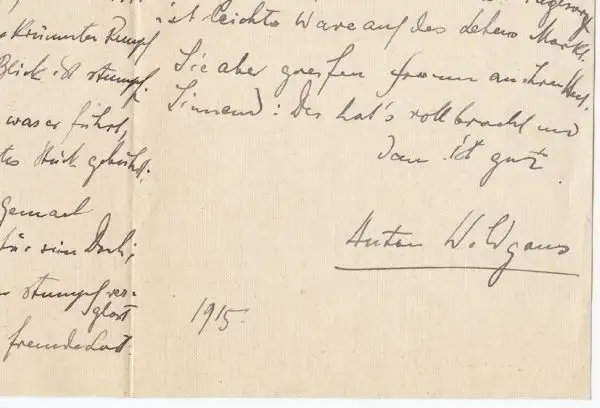 krümmter Rumpf
Blick ist stumpf.
was er führt,
Stück gebührt.
Gemach
für sein Dach,
stumpf ver-
glast
fremde Last.
ist leichte Ware auf des Lebens Markt.
Sie aber greifen fromm an ihren Hut,
Sinnend: Der hat's vollbracht und
dann ist gut.
Anton Wildgans
1915.